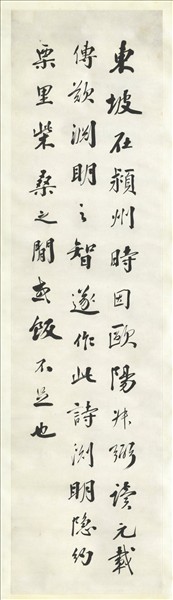 東坡在潁州時因歐陽叔弼讀元載
傳歎淵明之智遂作此詩淵明隱約
栗里柴桑之閒或飯不足也